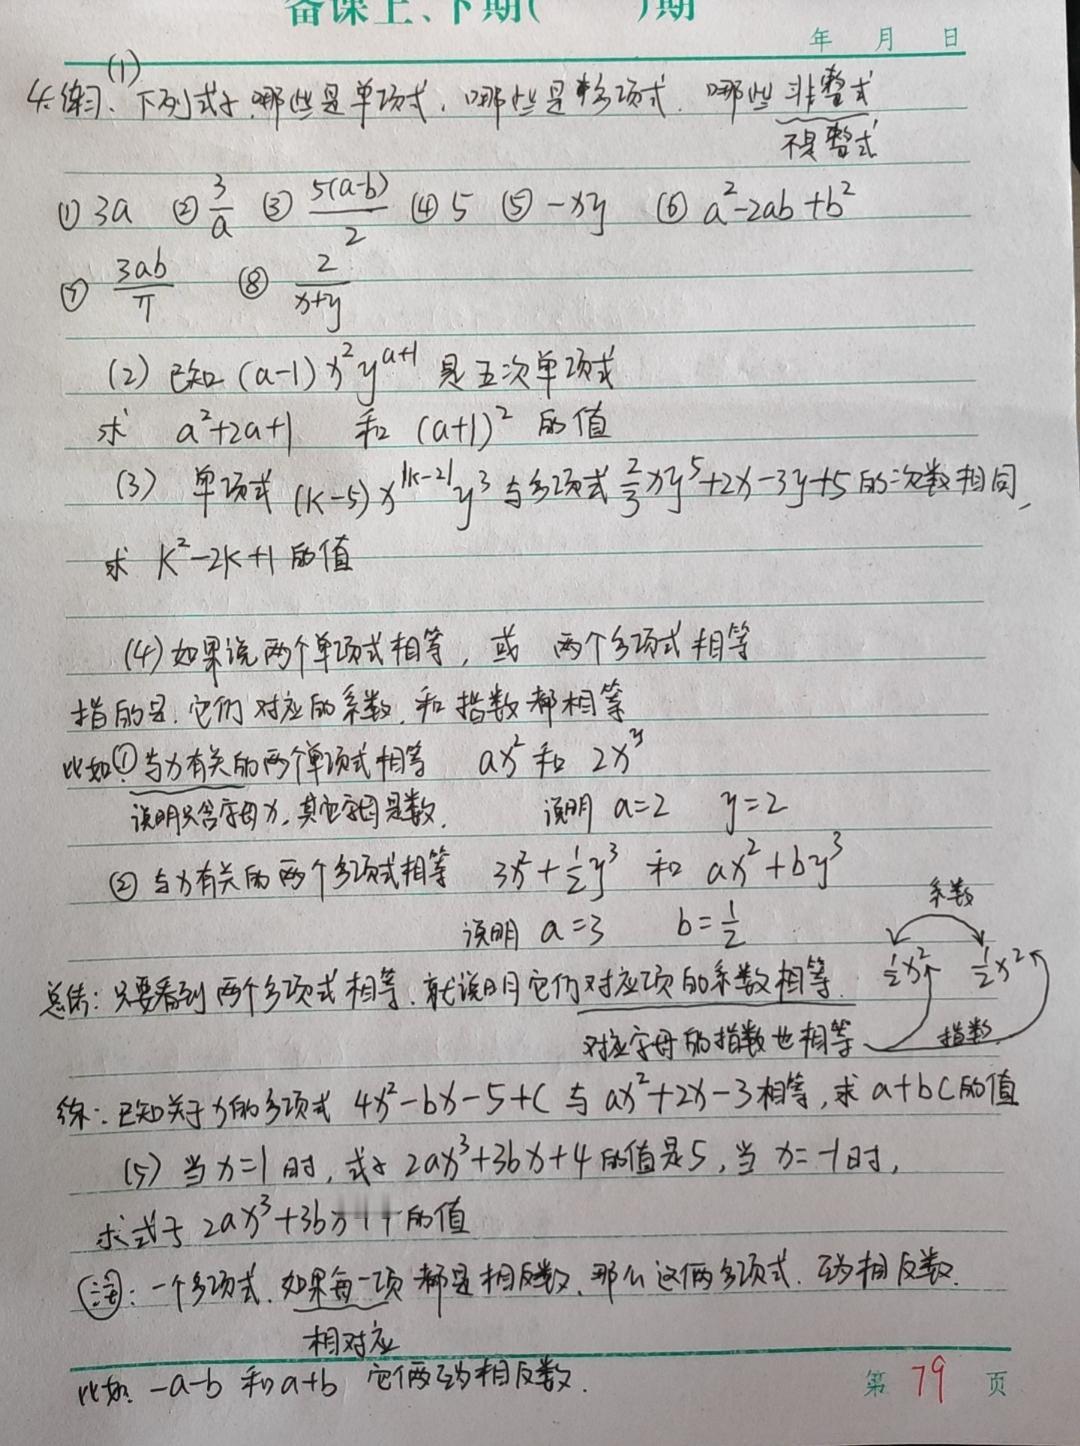 备课上、下期( )期
年 月 日
4.练习、(1)下列式子,哪些是单项式,哪些是多项式.哪些非整式
不是整式
① 3a ② 3/a ③ 5(a-b)/2 ④ 5 ⑤ -xy ⑥ a²-2ab+b²
⑦ 3ab/π ⑧ 2/(x+y)
(2) 已知 (a-1)x²y^(a+1) 是五次单项式
求 a²+2a+1 和 (a+1)² 的值
(3) 单项式 (k-5)x^|k-2|y³ 与多项式 2/3xy⁵+2x-3y+5 的次数相同,
求 k²-2k+1 的值
(4) 如果说两个单项式相等, 或 两个多项式相等
指的是.它们对应的系数.和指数都相等
比如① 与x有关的两个单项式相等 ax² 和 2x^y
说明只含字母x,其它字母是数. 说明 a=2 y=2
② 与x有关的两个多项式相等 3x²+1/2y³ 和 ax²+by³
系数
说明 a=3 b=1/2
总结: 只要看到两个多项式相等.就说明它们对应项的系数相等. 1/2x² 1/2x²
对应字母的指数也相等 指数.
练: 已知关于x的多项式 4x²-bx-5+c 与 ax²+2x-3相等,求a+bc的值
(5) 当x=1时, 式子 2ax³+3bx+4的值是5,当x=-1时,
求式子 2ax³+3bx+4的值
注: 一个多项式.如果每一项都是相反数.那么这俩多项式.互为相反数.
相对应
比如. -a-b 和 a+b 它俩互为相反数.
第 79 页